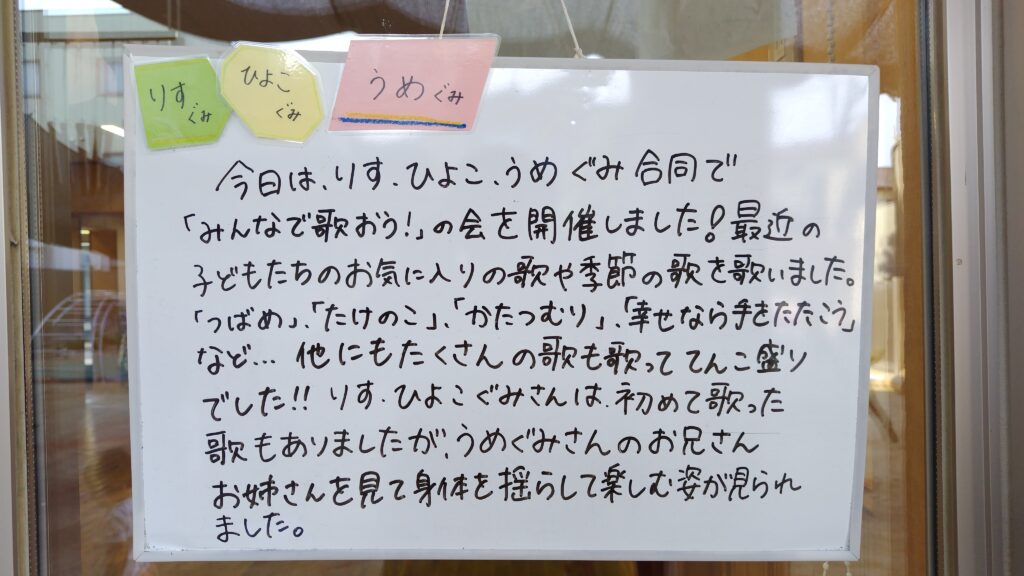 りすぐみ
ひよこぐみ
うめぐみ
今日は、りす、ひよこ、うめぐみ合同で
「みんなで歌おう!」の会を開催しました!最近の
子どもたちのお気に入りの歌や季節の歌を歌いました。
「つばめ」、「たけのこ」、「かたつむり」、「幸せなら手をたたこう」
など… 他にもたくさんの歌も歌っててんこ盛り
でした!! りす、ひよこぐみさんは、初めて歌った
歌もありましたが、うめぐみさんのお兄さん
お姉さんを見て身体を揺らして楽しむ姿が見られ
ました。